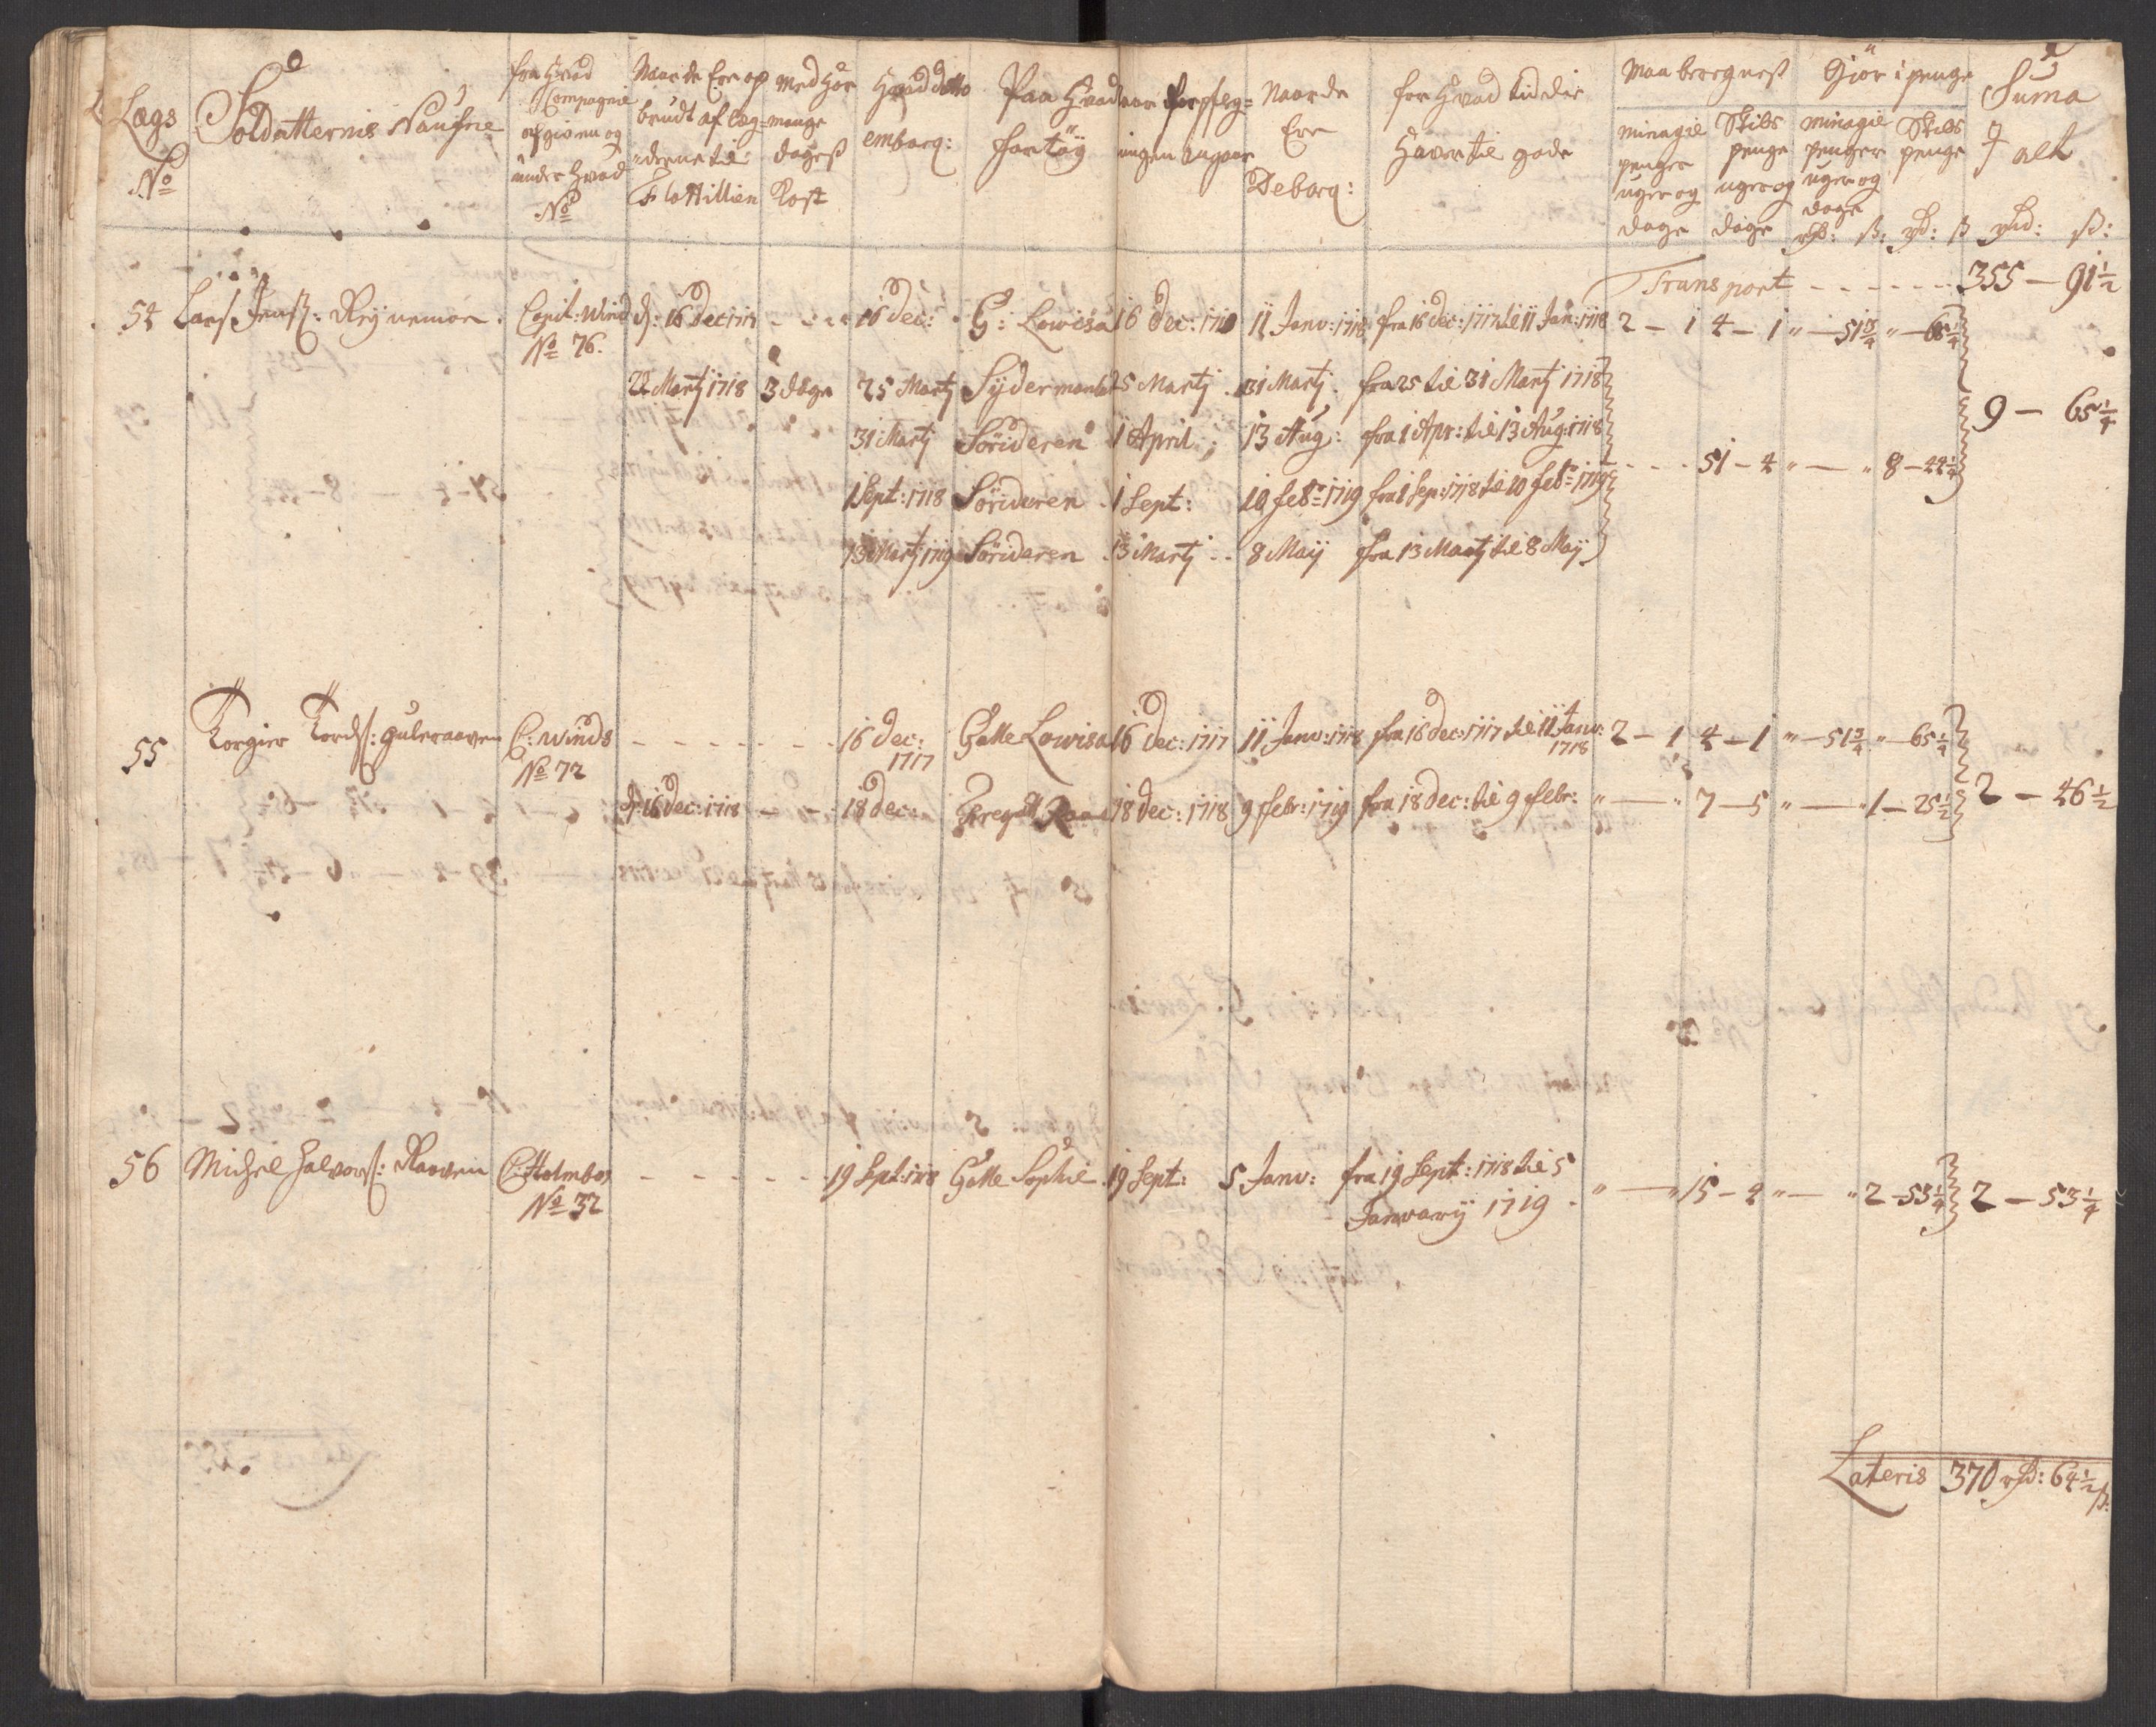 Lægs
No
Soldatternis Naufne
fra Hvad
Compagnie
afgiven og
under Hvad
No
Naar de Ere op
brudt af læg-
derne til
Flottillien
med Hor
mange
dages
Kost
Hvad dato
embarq:
Paa Hvad
fartöy
naar forpfleg=
ningen angaar
Naar de
Ere
Debarq:
for Hvad tid die
Haver til gode
Maa beregnes
minagie
penger
uger og
dage
Skibs
penge
uger og
dage
Giör i penge
minagie
penger
uger og
dage
rd: ß:
Skibs
penge
rd: ß
Suma
alt
rd: ß:
Transport - - - - - - 355 — 91½
54 Lars Jens: Reynemoen. Capit: Wind d: 16 dec 1717 - - - 16 dec: G: Lowisa 16 dec: 1717 11 Janv: 1718 fra 16 dec: 1717 til 11 Jan: 1718 2 - 1 4 - 1 " — 51¾ " — 65¼
No 76.
22 Martj 1718 3 dage 25 Martj Sydermanland 25 Martj 31 Martj. fra 25 til 31 Martj 1718
9 — 65¼
31 Martj Söridderen 1 April 13 Aug: fra 1 Apr: til 13 Aug: 1718
1 Sept: 1718 Söridderen 1 Sept: 10 feb: 1719 fra 1 Sep: 1718 til 10 feb: 1719 - - - 51 - 4 " — " 8 - 44½
13 Martj 1719 Söridderen 13 Martj - - 8 Maij fra 13 Martj til 8 Maij
55 Torgier Tords: guleraaven C: Winds - - - - - - 16 dec: Galle Lowisa 16 dec: 1717 11 Janv: 1718 fra 16 dec: 1717 til 11 Janv: 2 - 1 4 - 1 " — 51¾ " — 65¼
No 72 1717 1718
d: 16 dec: 1718 - - - 18 dec: Fregat 18 dec: 1718 9 febr: 1719 fra 18 dec: til 9 febr: " — " 7 - 5 " — " 1 - 25½ 2 — 46½
56 Michel Halvors: Raaven C: Holmboe - - - - - - 19 Sept: 1718 Galle Sophie 19 Sept: 5 Janv: fra 19 Sept: 1718 til 5
No 32 Januarij 1719 - " — " 15 - 4 " — " 2 - 53¼ 2 — 53¼
Lateris 370 rd: 64½ ß: